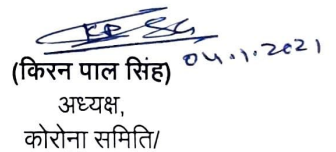 04.1.2021
(किरन पाल सिंह)
अध्यक्ष,
कोरोना समिति/